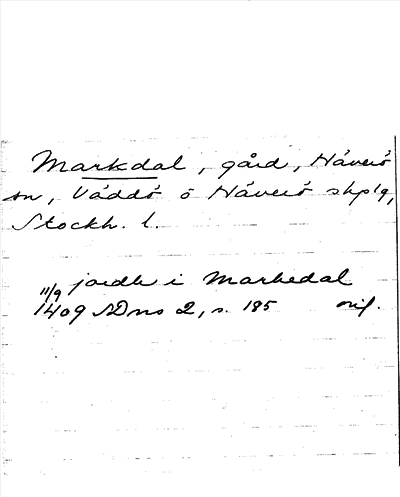 Markdal, gård, Häverö
sn, Väddö o Häverö skplg,
Stockh. l.
jordh i Markedal
11/9 1409 SD ns 2, s. 185 orig.